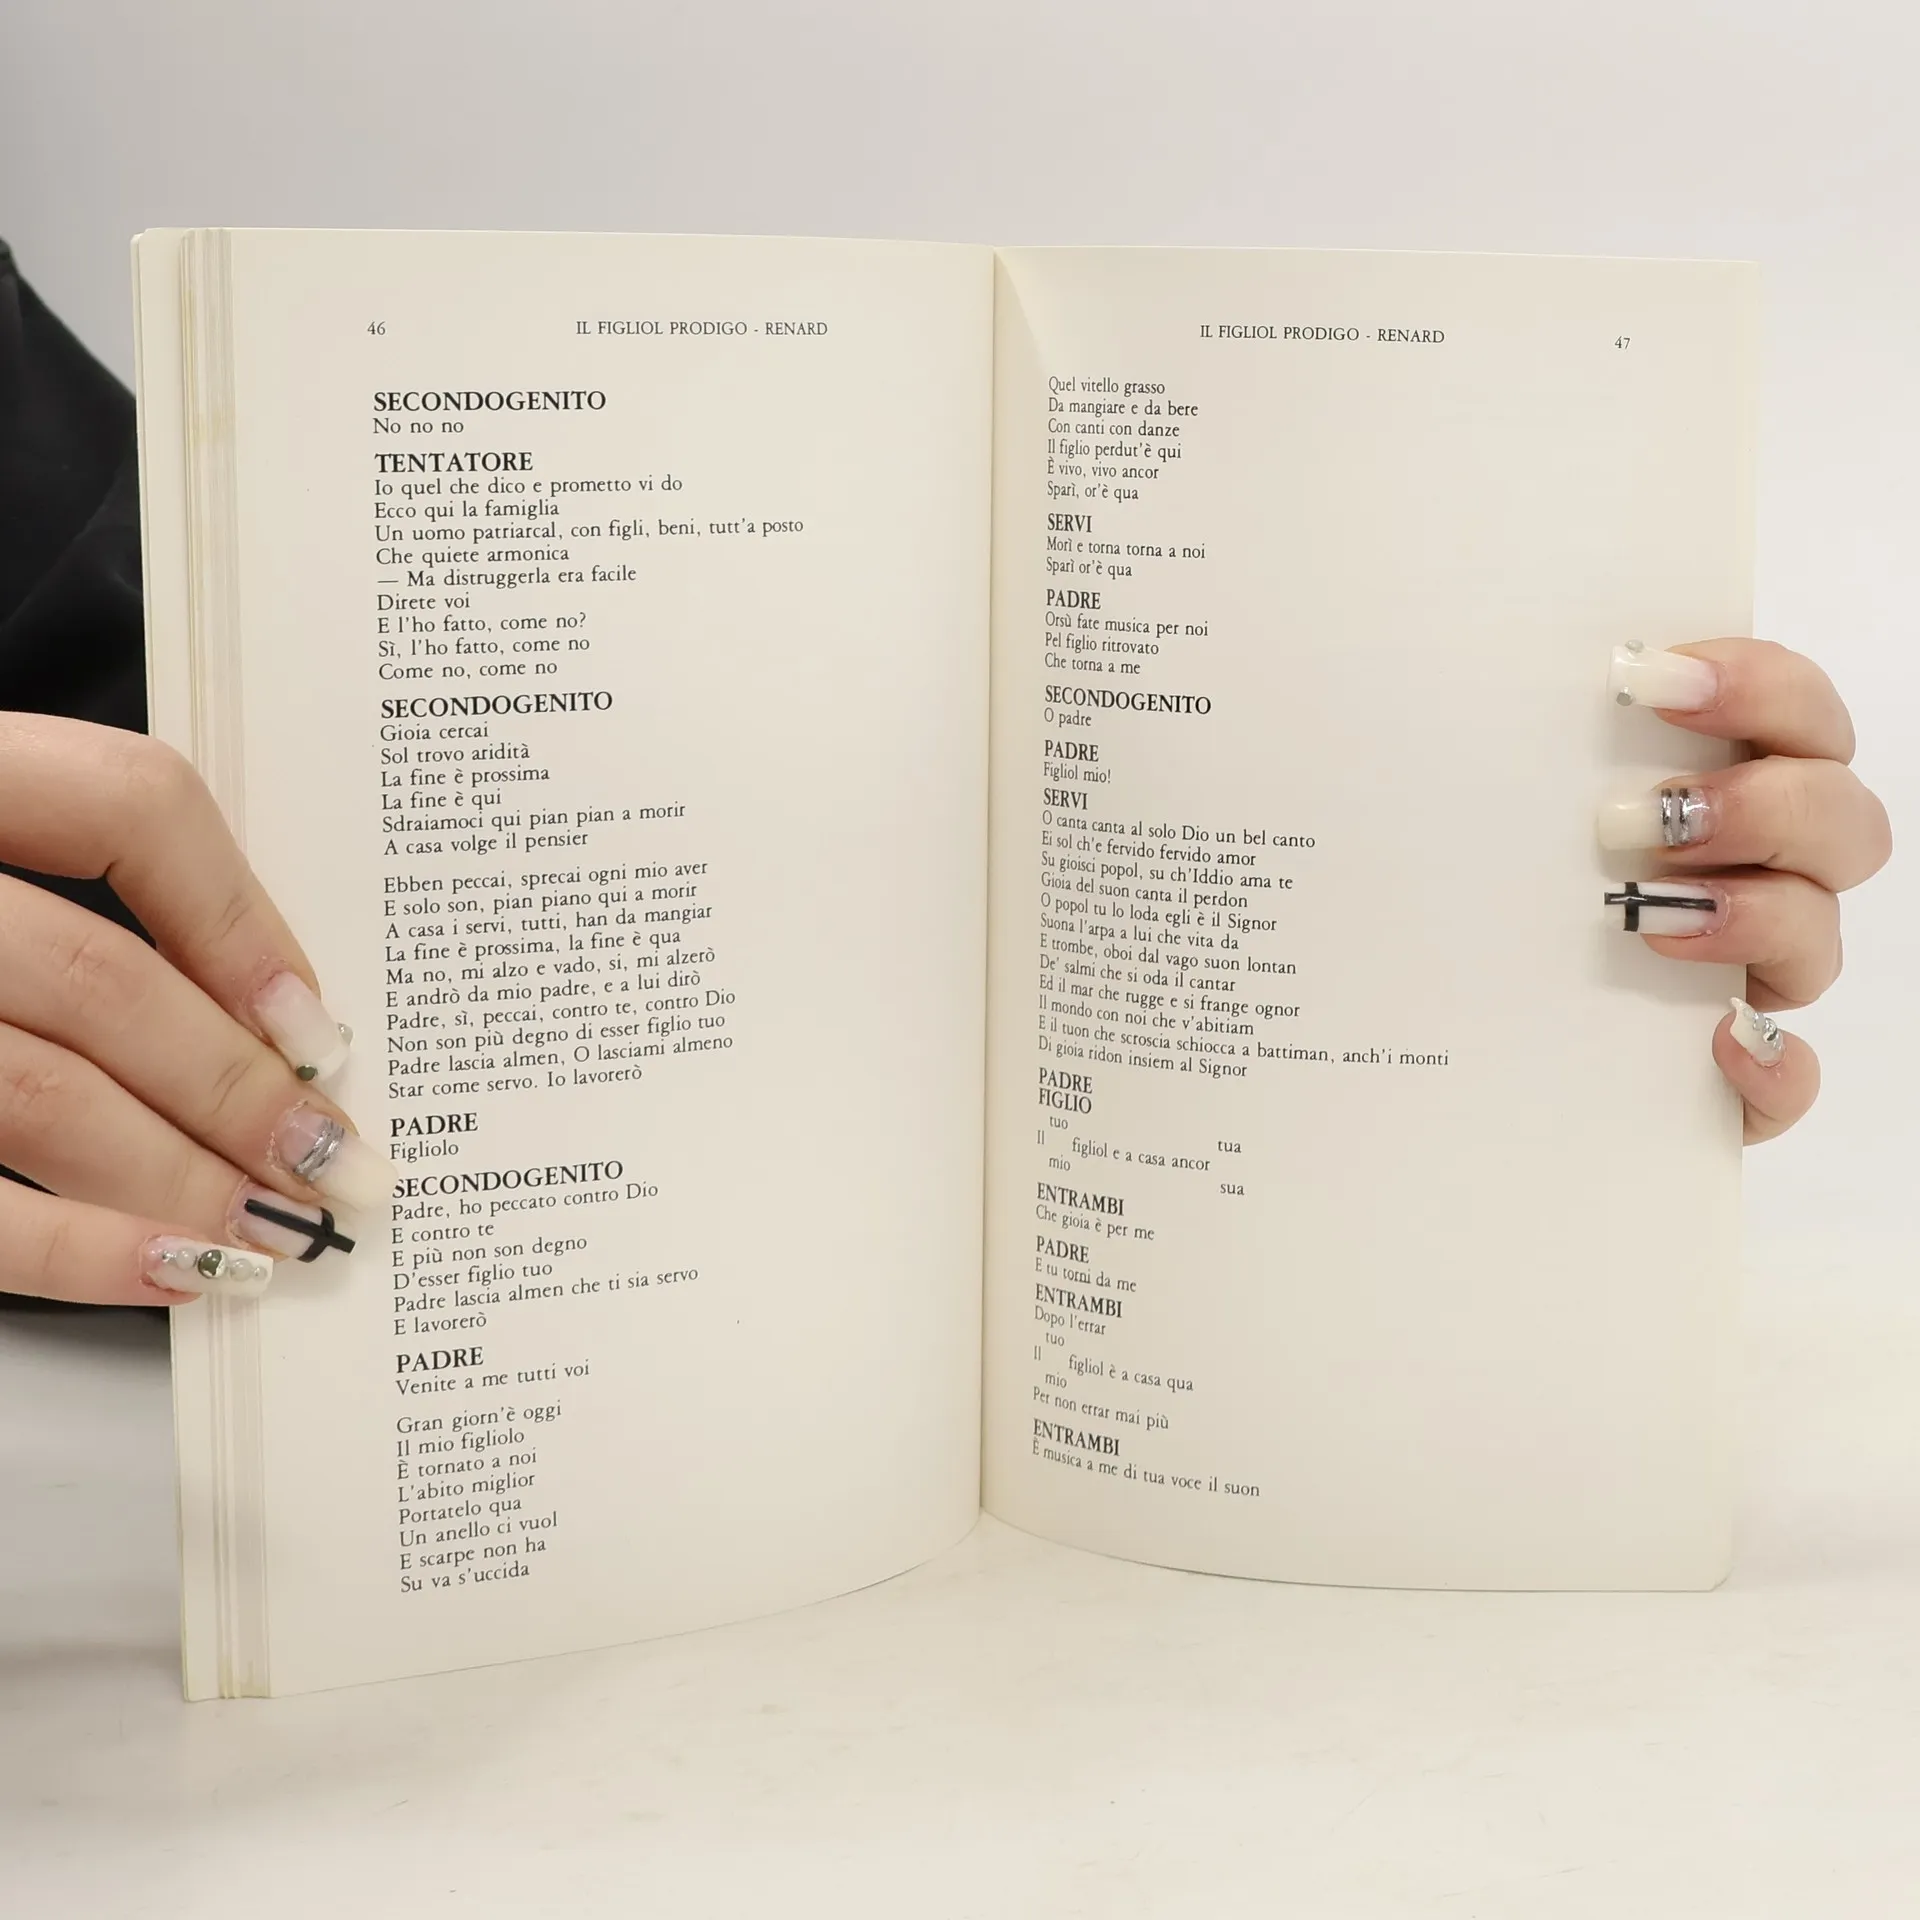 46
IL FIGLIOL PRODIGO - RENARD
SECONDOGENITO
No no no
TENTATORE
Io quel che dico e prometto vi do
Ecco qui la famiglia
Un uomo patriarcal, con figli, beni, tutt'a posto
Che quiete armonica
— Ma distruggerla era facile
Direte voi
E l'ho fatto, come no?
Sì, l'ho fatto, come no
Come no, come no
SECONDOGENITO
Gioia cercai
Sol trovo aridità
La fine è prossima
La fine è qui
Sdraiamoci qui pian pian a morir
A casa volge il pensier
Ebben peccai, sprecai ogni mio aver
E solo son, pian piano qui a morir
A casa i servi, tutti, han da mangiar
La fine è prossima, la fine è qua
Ma no, mi alzo e vado, si, mi alzerò
E andrò da mio padre, e a lui dirò
Padre, sì, peccai, contro te, contro Dio
Non son più degno di esser figlio tuo
Padre lascia almen, O lasciami almeno
Star come servo. Io lavorerò
PADRE
Figliolo
SECONDOGENITO
Padre, ho peccato contro Dio
E contro te
E più non son degno
D'esser figlio tuo
Padre lascia almen che ti sia servo
E lavorerò
PADRE
Venite a me tutti voi
Gran giorn'è oggi
Il mio figliolo
È tornato a noi
L'abito miglior
Portatelo qua
Un anello ci vuol
E scarpe non ha
Su va s'uccida
IL FIGLIOL PRODIGO - RENARD
47
Quel vitello grasso
Da mangiare e da bere
Con canti con danze
Il figlio perdut'è qui
È vivo, vivo ancor
Sparì, or'è qua
SERVI
Morì e torna torna a noi
Sparì or'è qua
PADRE
Orsù fate musica per noi
Pel figlio ritrovato
Che torna a me
SECONDOGENITO
O padre
PADRE
Figliol mio!
SERVI
O canta canta al solo Dio un bel canto
Ei sol ch'e fervido fervido amor
Su gioisci popol, su ch'Iddio ama te
Gioia del suon canta il perdon
O popol tu lo loda egli è il Signor
Suona l'arpa a lui che vita da
E trombe, oboi dal vago suon lontan
De' salmi che si oda il cantar
Ed il mar che rugge e si frange ognor
Il mondo con noi che v'abitiam
E il tuon che scroscia schiocca a battiman, anch'i monti
Di gioia ridon insiem al Signor
PADRE
FIGLIO
tuo tua
Il figliol e a casa ancor
mio sua
ENTRAMBI
Che gioia è per me
PADRE
E tu torni da me
ENTRAMBI
Dopo l'errar
tuo
Il figliol è a casa qua
mio
Per non errar mai più
ENTRAMBI
È musica a me di tua voce il suon